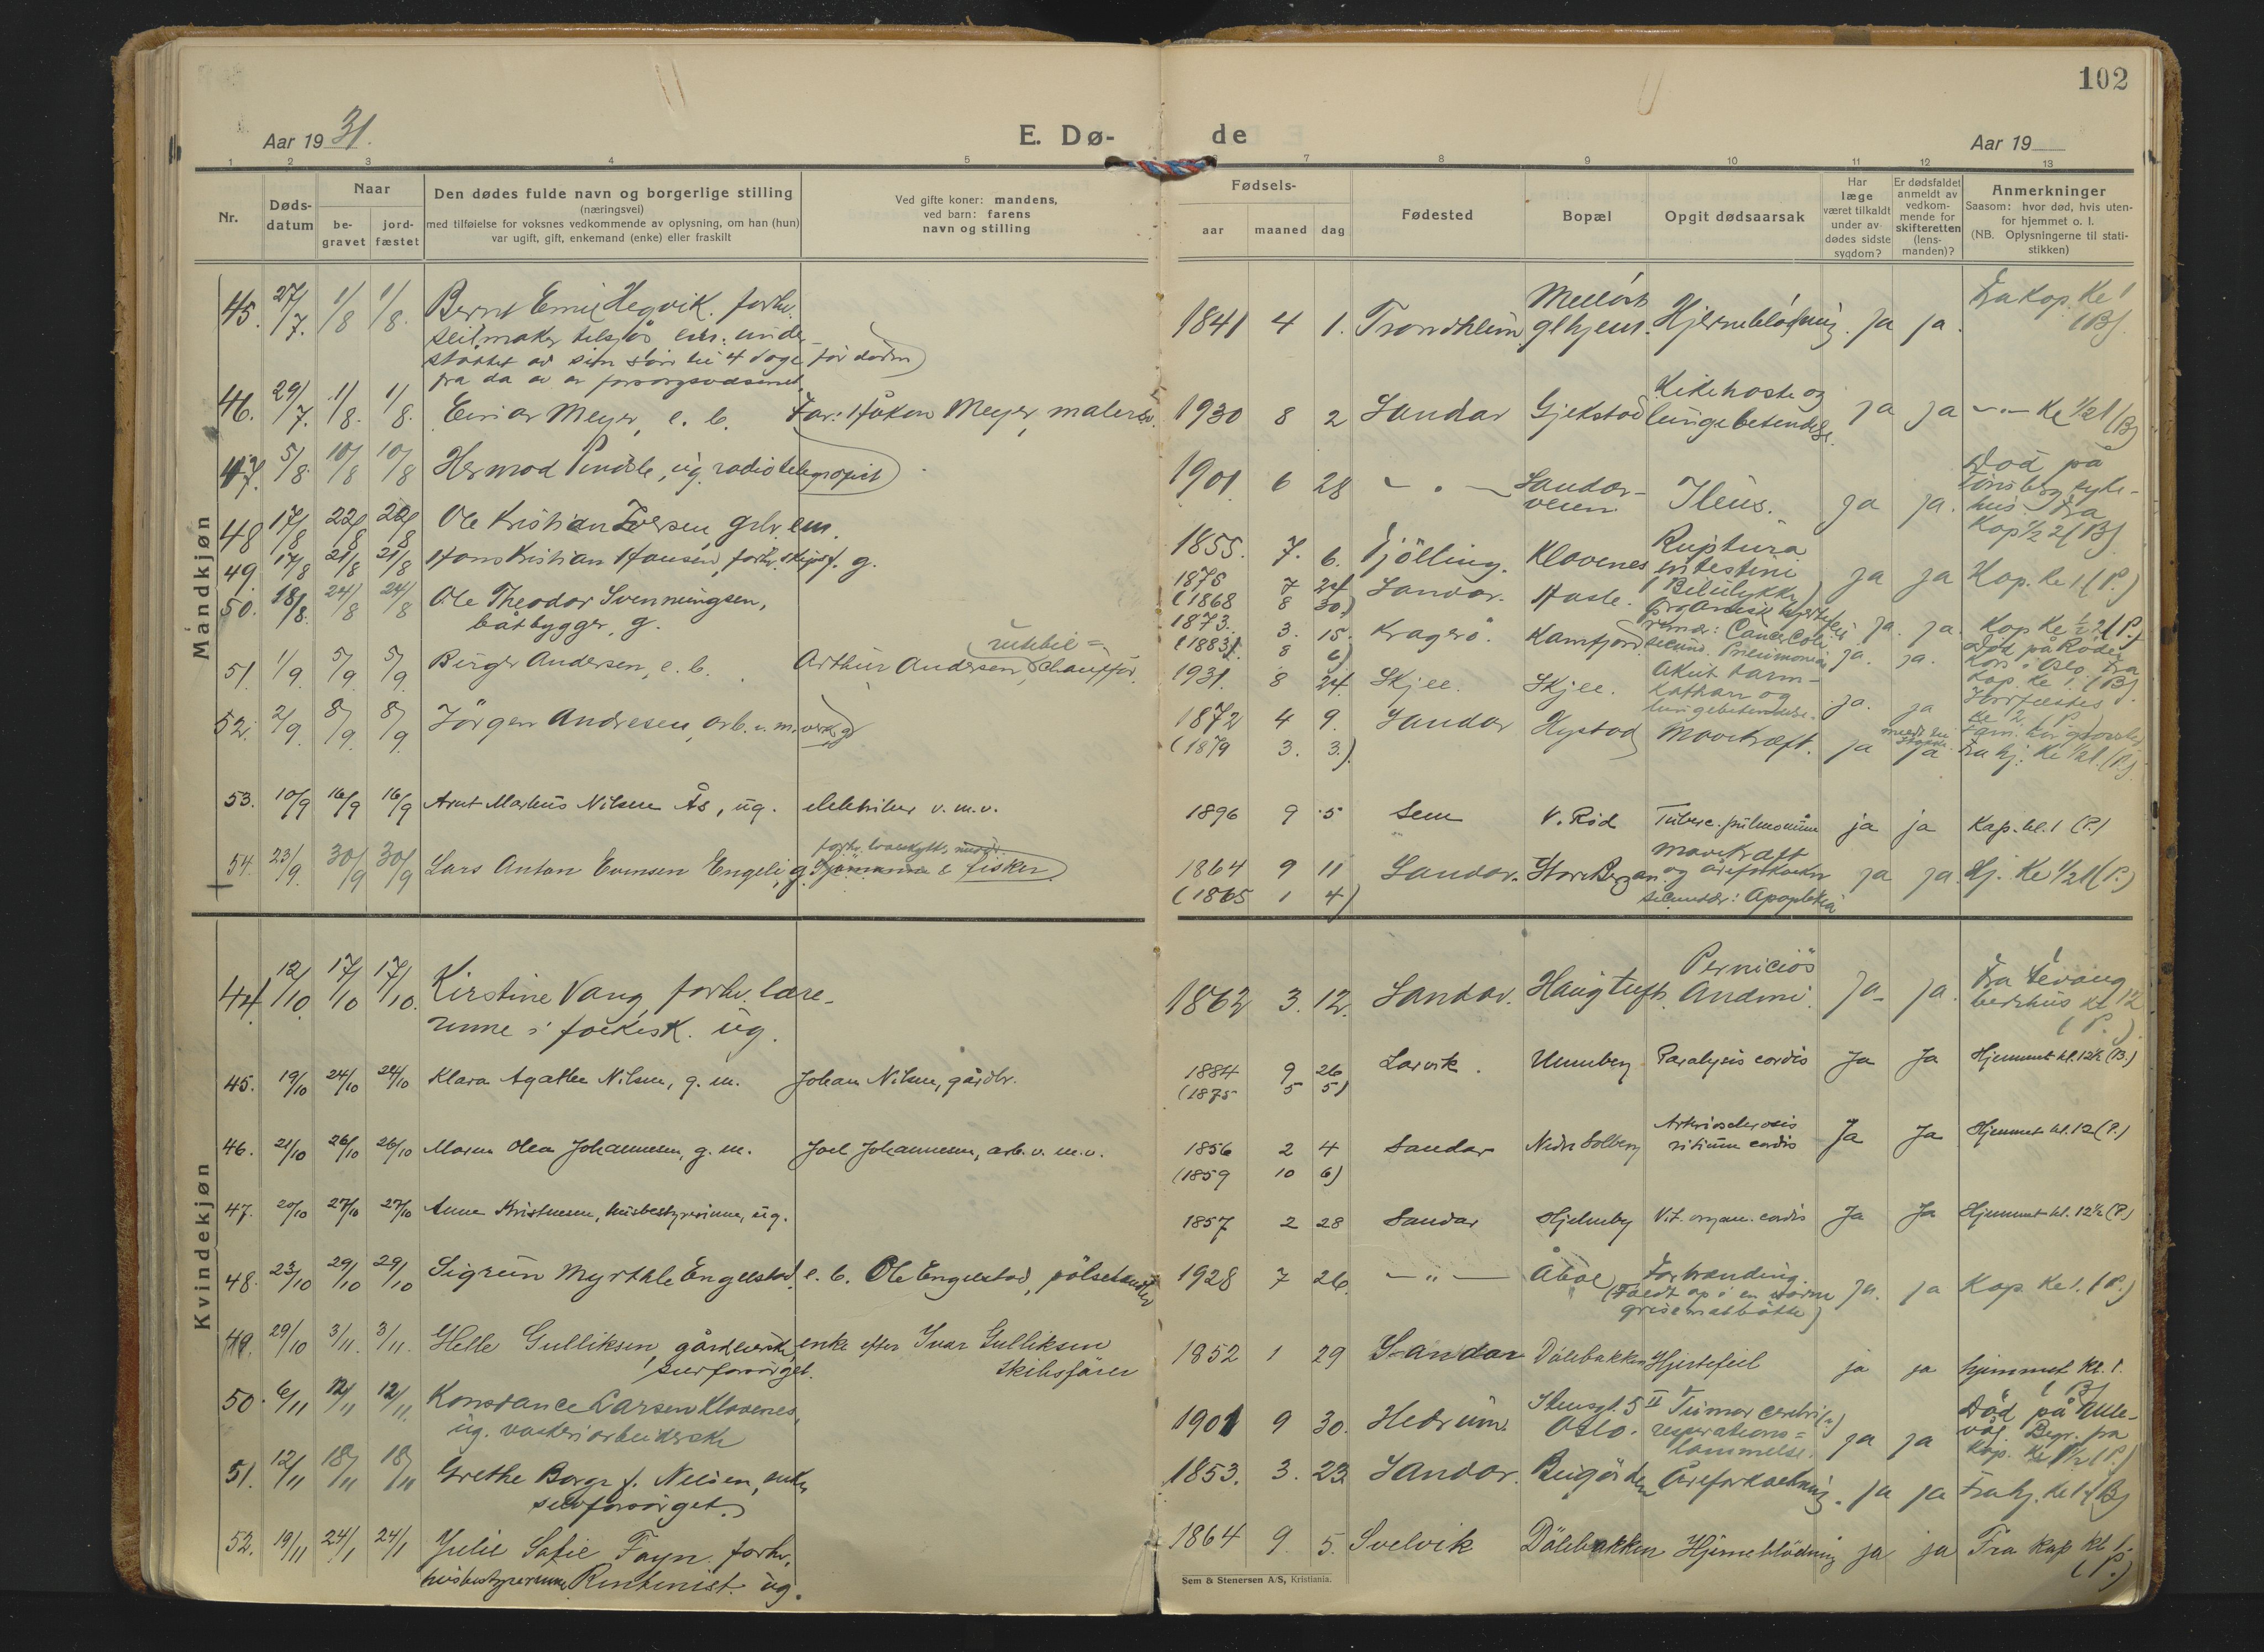 102
Aar 1931.
E. Dø-
de
Aar 19
1 2 3 4 5 7 8 9 10 11 12 13
Nr.
Døds-
datum
Naar
be-
gravet
jord-
fæstet
Den dødes fulde navn og borgerlige stilling
(næringsvei)
med tilføielse for voksnes vedkommende av oplysning, om han (hun)
var ugift, gift, enkemand (enke) eller fraskilt
Ved gifte koner: mandens,
ved barn: farens
navn og stilling
Fødsels-
aar maaned dag
Fødested
Bopæl
Opgit dødsaarsak
Har
læge
været tilkaldt
under av-
dødes sidste
sygdom?
Er dødsfaldet
anmeldt av
vedkom-
mende for
skifteretten
(lens-
manden)?
Anmerkninger
Saasom: hvor død, hvis uten-
for hjemmet o. l.
(NB. Oplysningerne til stati-
stikken)
Mandkjøn
45. 27/7. 1/8 1/8. Bernt Emil Hegvik. forhv. 1841 4 1. Trondheim glhjem. Hjerneblødning. Ja ja. Fra Kap. Kl 1 (B)
seilmaker tilsjøs em. under-
støttet av sin til 4 dage før døden)
fra da av av forsorgsvæsenet.
46. 29/7. 1/8. 1/8. Einar Meyer, e. b. Far: Håkon Meyer, 1930 8 2 Sandar Gjekstad Kikhoste og ja ja — " — Kl 1/2 1 (B)
lungebetendelse.
47. 5/8. 10/8 10/8 Hermod Pindsle, ug. radiotelegrafist 1901 6 28 — " — Sandar- Ileus. ja ja. Død på
veien. Tønsberg syke-
hus. Fra
Kap 1/2 2 (B)
48 17/8 22/8 22/8 Ole Kristian Iversen, grbr. em. 1855. 7. 6. Tjölling. Klavenes Ruptura ja ja Kap. Kl 1 (P.)
intestini
(Bilulykke)
49. 17/8 21/8 21/8 Hans Kristian Hansen, forhv. skipsf. g. 1876 7 24 Sandar. Hasle. ja. ja. Kap Kl 1/2 2 (P.)
(1868 8 30)
50. 18/8. 24/8 24/8 Ole Theodor Svenningsen, 1873. 3. 15. Kragerö. Kamfjord primær: Cancer Coli. ja. ja. Død på Röde
båtbygger, g. (1883 8 6) secund. Pneumonia Kors i Oslo. Fra
Kap. Kl 1. (B)
51. 1/9. 5/9 5/9 Birger Andersen, e. b. Arthur Andersen, (rutebil= chauffør. 1931. 8 24. Skjee. Skjee. Akut tarm- ja. ja Jordfæstes
katharr og
lungebetendelse.
52. 2/9. 8/9. 8/9. Jörgen Andresen, arb. v. m. verk. g) 1872 4 9. Sandar Hystad Mavekræft. ja ja Fra hj. Kl 1/2 1. (P.)
(1879 3. 3.)
53. 10/9 16/9 16/9 Arnt Markus Nilsen Ås, ug. elektriker v. m. v. 1896 9 5 Sem V. Röd Tuberc. pulmonum ja ja Kap. kl. 1 (P.)
54. 23/9. 30/9 30/9 Lars Anton Evensen Engeli, g. Sjömann & fisker 1864 9 11 Sandar. Store Bergan Mavekræft ja ja. Hj. Kl 1/2 1 (P.)
og åreforkalkn
(1865 1 4) secundær: Apoplexia
Kvindekjøn
44. 12/10. 17/10 17/10. Kirstine Vang, forhv. lære- 1862 3. 12. Sandar. Haugtuft. Perniciös Ja- ja. Fra
rinne i folkesk. ug. Anämi. bedehus kl 12
(P.)
45. 19/10 24/10 24/10 Klara Agathe Nilsen, g. m. Johan Nilsen, gårdbr. 1884 9 26 Larvik. Unneberg Paralysis cordis Ja Ja Hjemmet kl. 12 1/2 (B.)
(1875 5 5)
46. 21/10 26/10 26/10 Maren Olea Johannesen, g. m. Joel Johannesen, arb. v. m. v. 1856 2 4 Sandar Nedre Solberg Arteriosclerosis Ja Ja Hjemmet kl. 12 (P.)
vitium cordis
(1859 10 6)
47. 20/10 27/10 27/10 Anne Kristensen, husbestyrerinne, ug. 1857 2 28 Sandar Hjelmby Vit. organ. cordis Ja Ja Hjemmet kl. 12 1/2 (P.)
48. 23/10 29/10 29/10 Sigrun Myrthle Engelstad, e. b. Ole Engelstad, pölsehandler 1928 7 26. — " — Åbol Forbrænding. Ja. ja Kap. Kl 1. (P.)
(Faldt op i en varm
grisematbötte)
49. 29/10 3/11. 3/11. Helle Gulliksen, gårdeierske, enke efter Ivar Gulliksen 1852 1 29 Sandar Dölebakken Hjertefeil ja ja hjemmet Kl. 1.
selvforsörget. skibsförer (B)
50. 6/11 12/11 12/11. Konstance Larsen Klavenes, 1901 9 30. Hedrum. 5 II Tumor cerebri ja ja Död på Ulle-
ug. vaskeriarbeiderske Oslo. respirations= vål. Begr. fra
lammelse. Kap. Kl 1 1/2 (P.)
51. 12/11 18/11 18/11 Grethe Borge f. Nilsen, enke, 1853. 3. 23 Sandar. Bugården Åreforkalkning. ja ja Fra hj. Kl 1 (B)
selvforsörget.
52. 19/11 24/1 24/1 Julie Sofie Fayn. forhv. 1864 9 5. Svelvik Dölebakken Hjerneblödning ja ja Fra Kap Kl 1.
husbestyrerinne, Rentenist. ug. (P.)
Sem & Stenersen A/S, Kristiania.